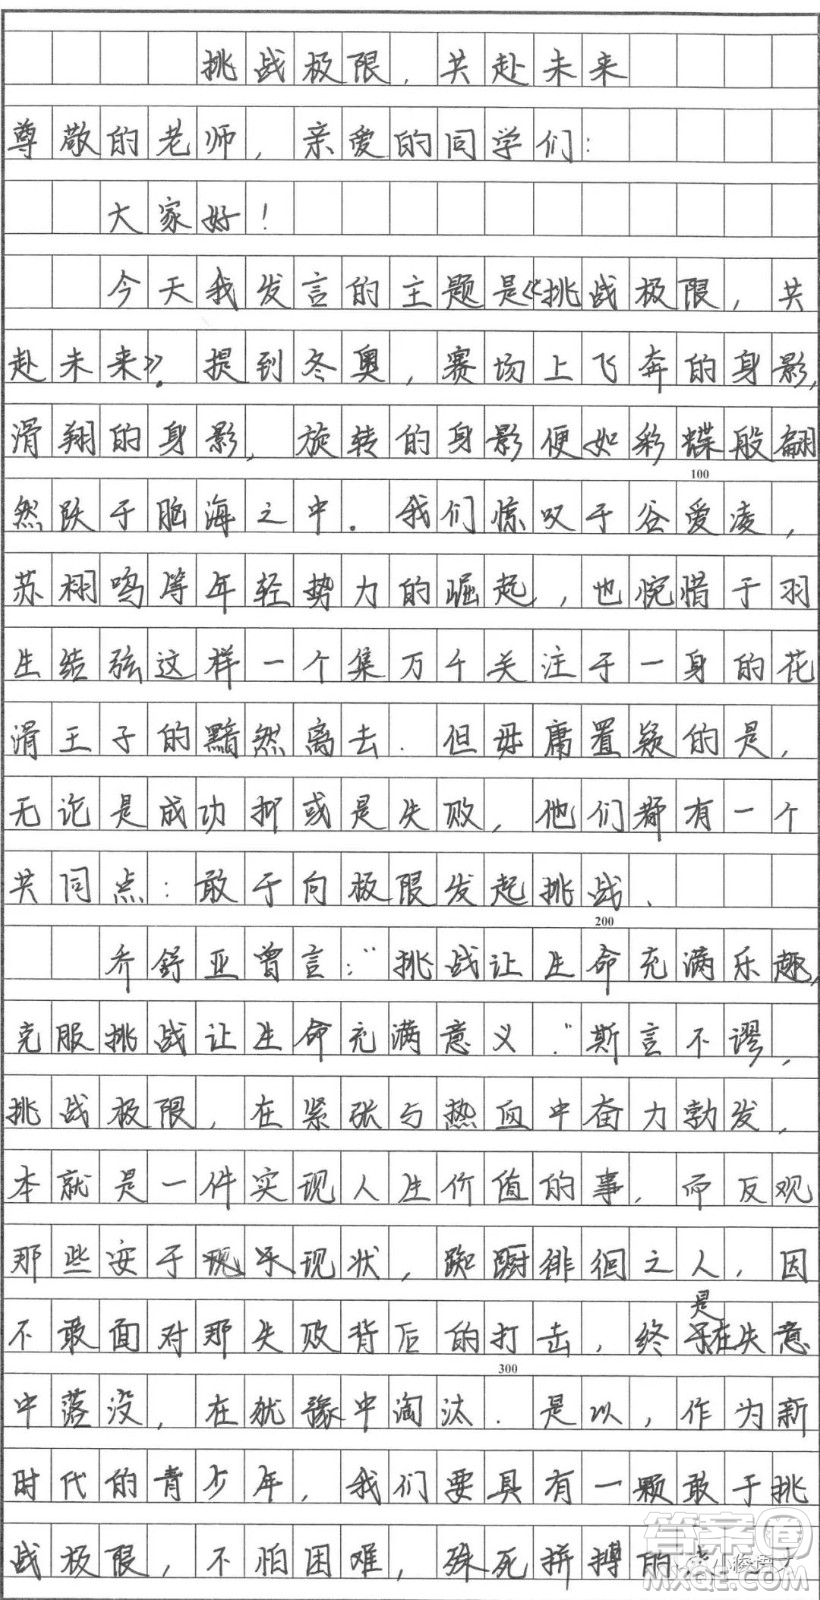 挑战极限，共赴未来
尊敬的老师，亲爱的同学们：
大家好！
今天我发言的主题是《挑战极限，共
赴未来》。提到冬奥，赛场上飞奔的身影，
滑翔的身影，旋转的身影便如彩蝶般翩
100
然跃于脑海之中。我们惊叹于谷爱凌，
苏栩鸣等年轻势力的崛起，也惋惜于羽
生结弦这样一个集万千关注于一身的花
滑王子的黯然离去。但毋庸置疑的是，
无论是成功抑或是失败，他们都有一个
共同点：敢于向极限发起挑战。
200
乔舒亚曾言：“挑战让生命充满乐趣，
克服挑战让生命充满意义。”斯言不谬，
挑战极限，在紧张与热血中奋力勃发，
本就是一件实现人生价值的事。而反观
那些安于现状，踟蹰徘徊之人，因
不敢面对那失败背后的打击，终是在失意
300
中落没，在犹豫中淘汰。是以，作为新
时代的青少年，我们要具有一颗敢于挑
战极限，不怕困难，殊死拼搏的
答案圈
MXQE.COM